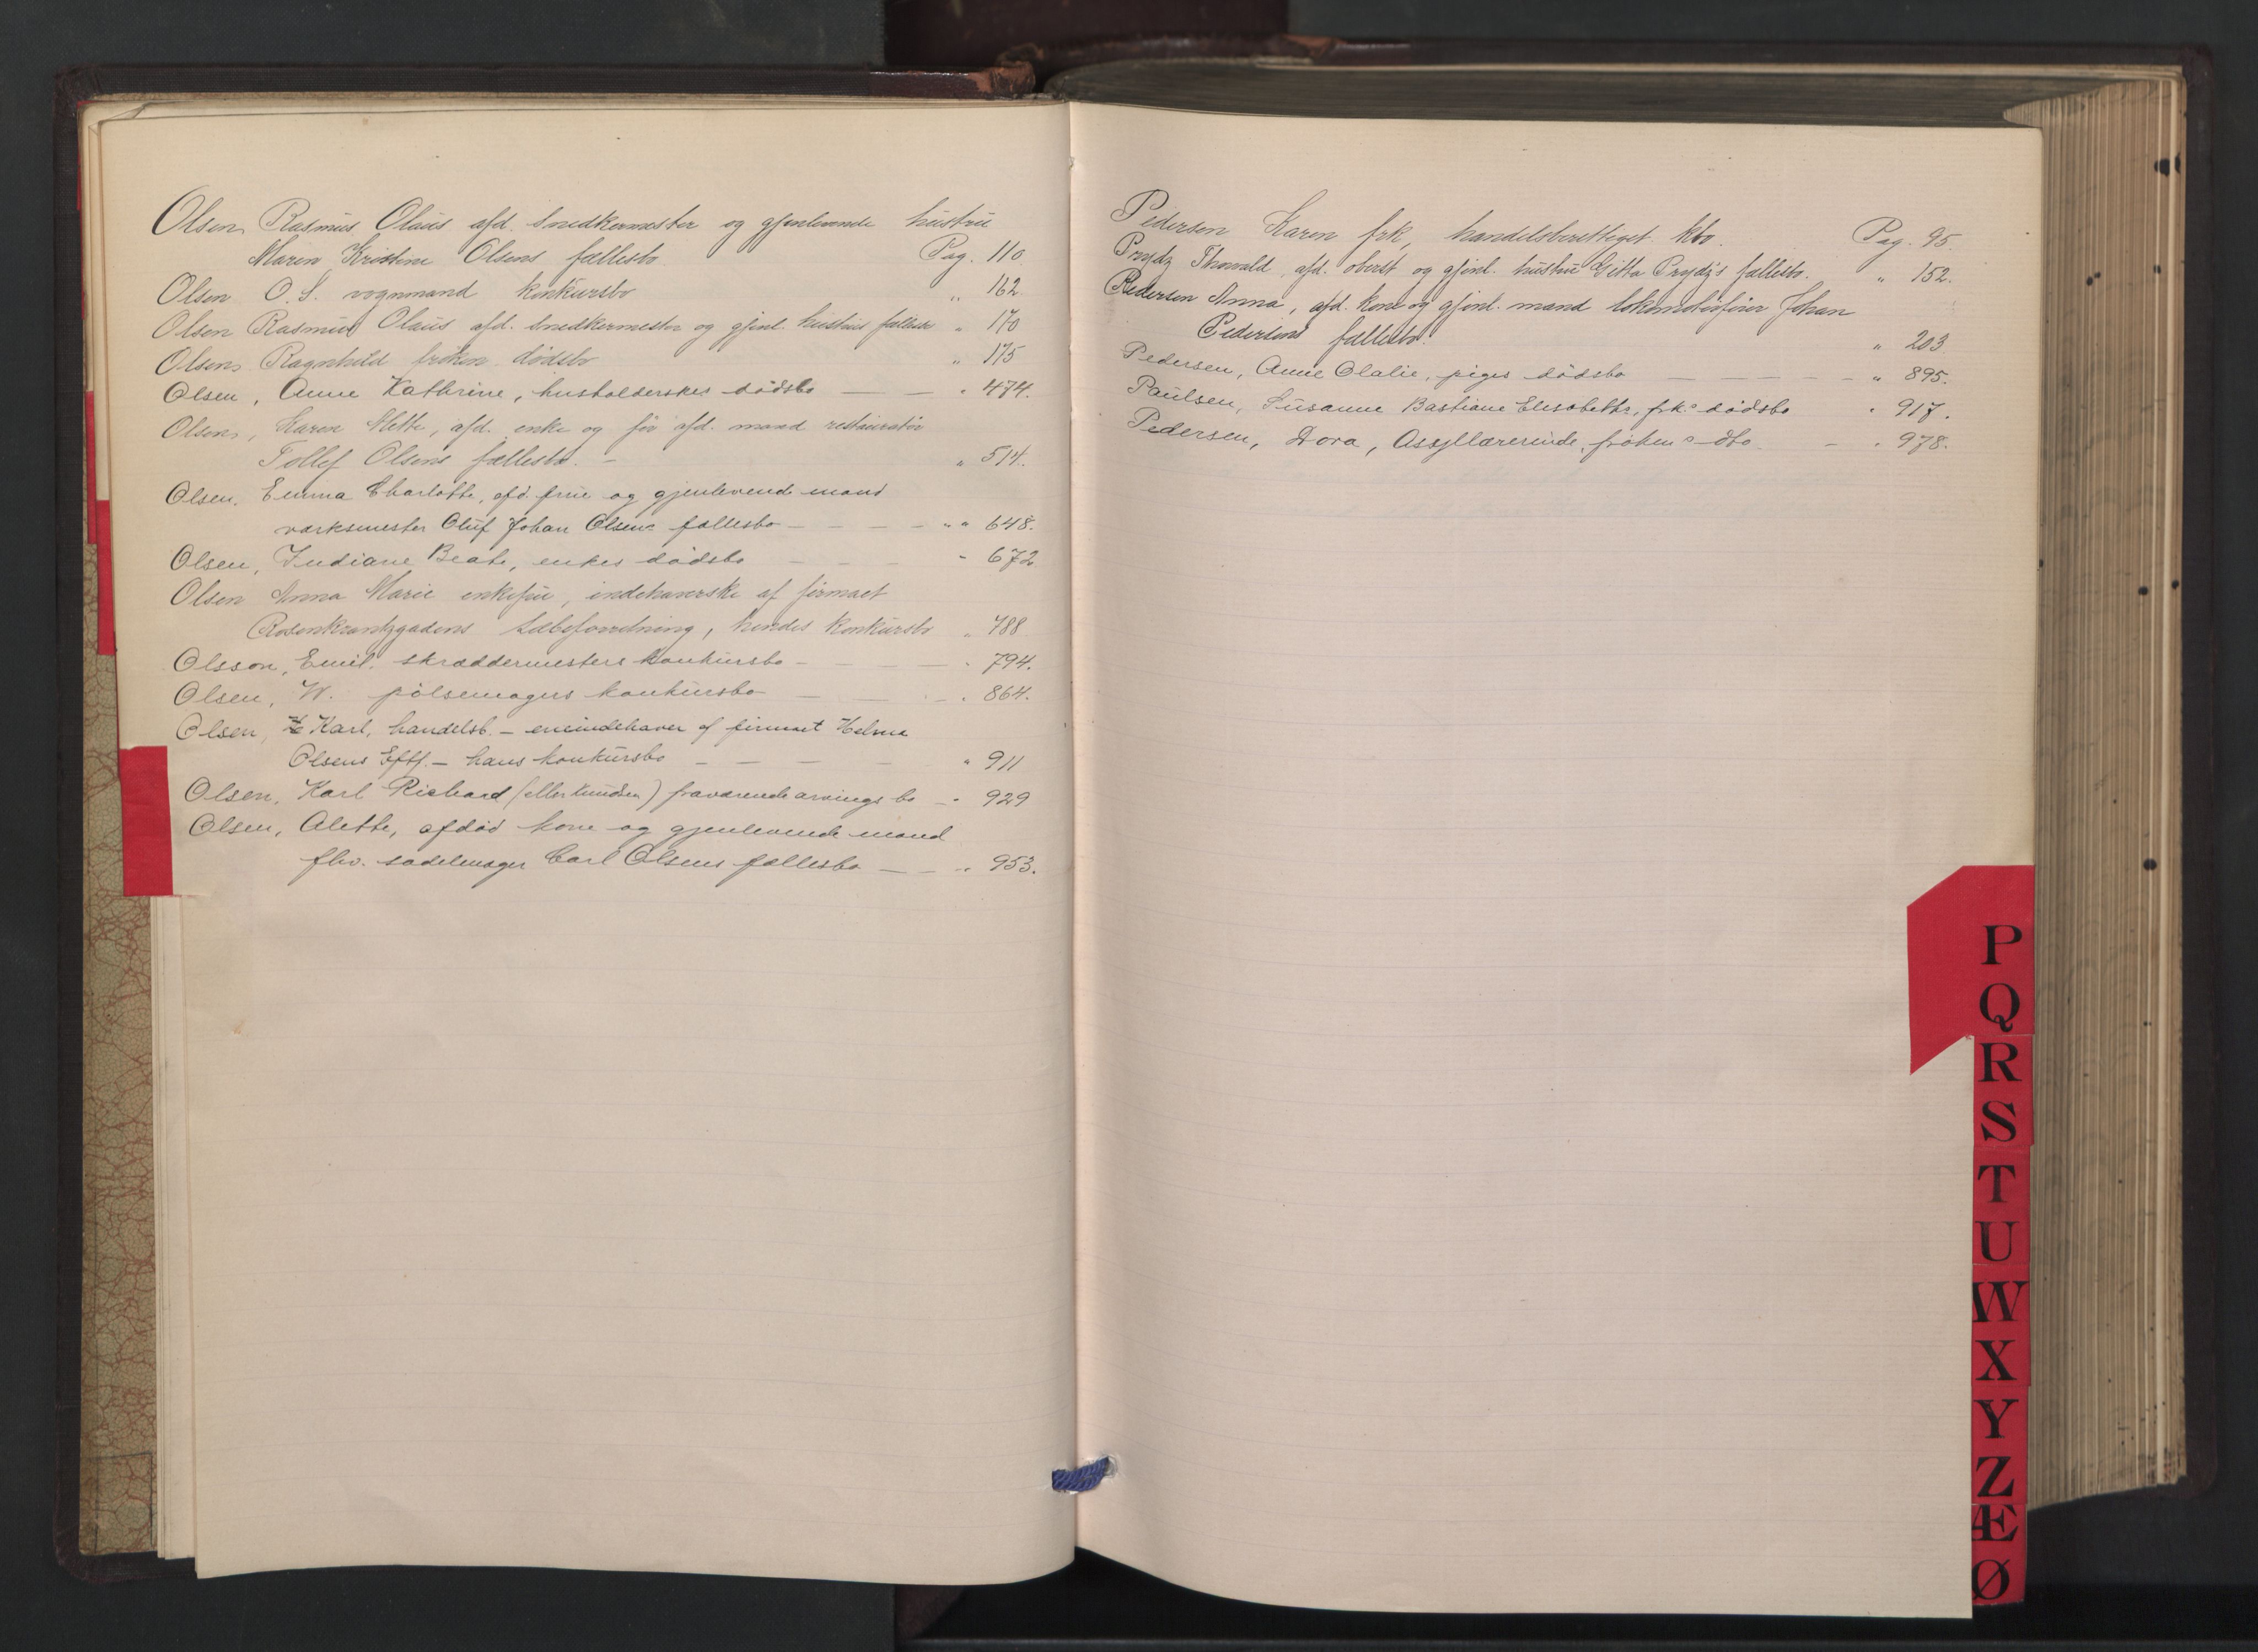 Olsen, Rasmus Olaus afd. snedkermester og gjenlevende hustru
Maren Kristine Olsens fællesbo. Pag. 110.
Olsen O. S. vognmand konkursbo " 162
Olsen Rasmus Olaus afd. snedkermester og gjenl. hustrus fællesbo " 170
Olsen, Ragnhild frøken dødsbo " 175
Olsen, Anne Kathrine, husholderskes dødsbo — — " 474.
Olsen, Karen Mette, afd. enke og før afd. mand restauratør
Tollef Olsens fællesbo. — " 514.
Olsen, Emma Charlotte, afd. frue og gjenlevende mand
værksmester Oluf Johan Olsens fællesbo — — — — " " 648.
Olsen, Indiane Beate, enkes dødsbo — — — " 672
Olsen Anna Marie enkefrue, indehaverske af firmaet
Rosenkrantzgadens sæbeforretning, hendes konkursbo " 788
Olsson, Emil. skræddermesters konkursbo — — — " 794.
Olsen, W. pølsemagers konkursbo — — " 864.
Olsen, Karl, handelsb. — eneindehaver af firmaet Helma
Olsens Eftf. — hans konkursbo — — — — " 911
Olsen, Karl Richard (eller Knudsen) fraværende arvings bo — " 929
Olsen, Alette, afdød kone og gjenlevende mand
fhv. sadelmager Carl Olsens fællesbo — — " 953.
Pedersen Karen frk, handelsberettiget kbo. Pag. 95.
Prydz Thorvald, afd. oberst og gjenl. hustru Gitta Prydz's fællesbo. " 152.
Pedersen Anna, afd. kone og gjenl. mand lokomotivfører Johan
Pedersens fællesbo. " 203
Pedersen, Anne Olalie, piges dødsbo — — — — " 895.
Paulsen, Susanne Bastiane Elisabeth, frk.s dødsbo " 917.
Pedersen, Dora, Asyllærerinde, frøkens dbo. — " 978.
P
Q
R
S
T
U
W
X
Y
Z
Æ
Ø